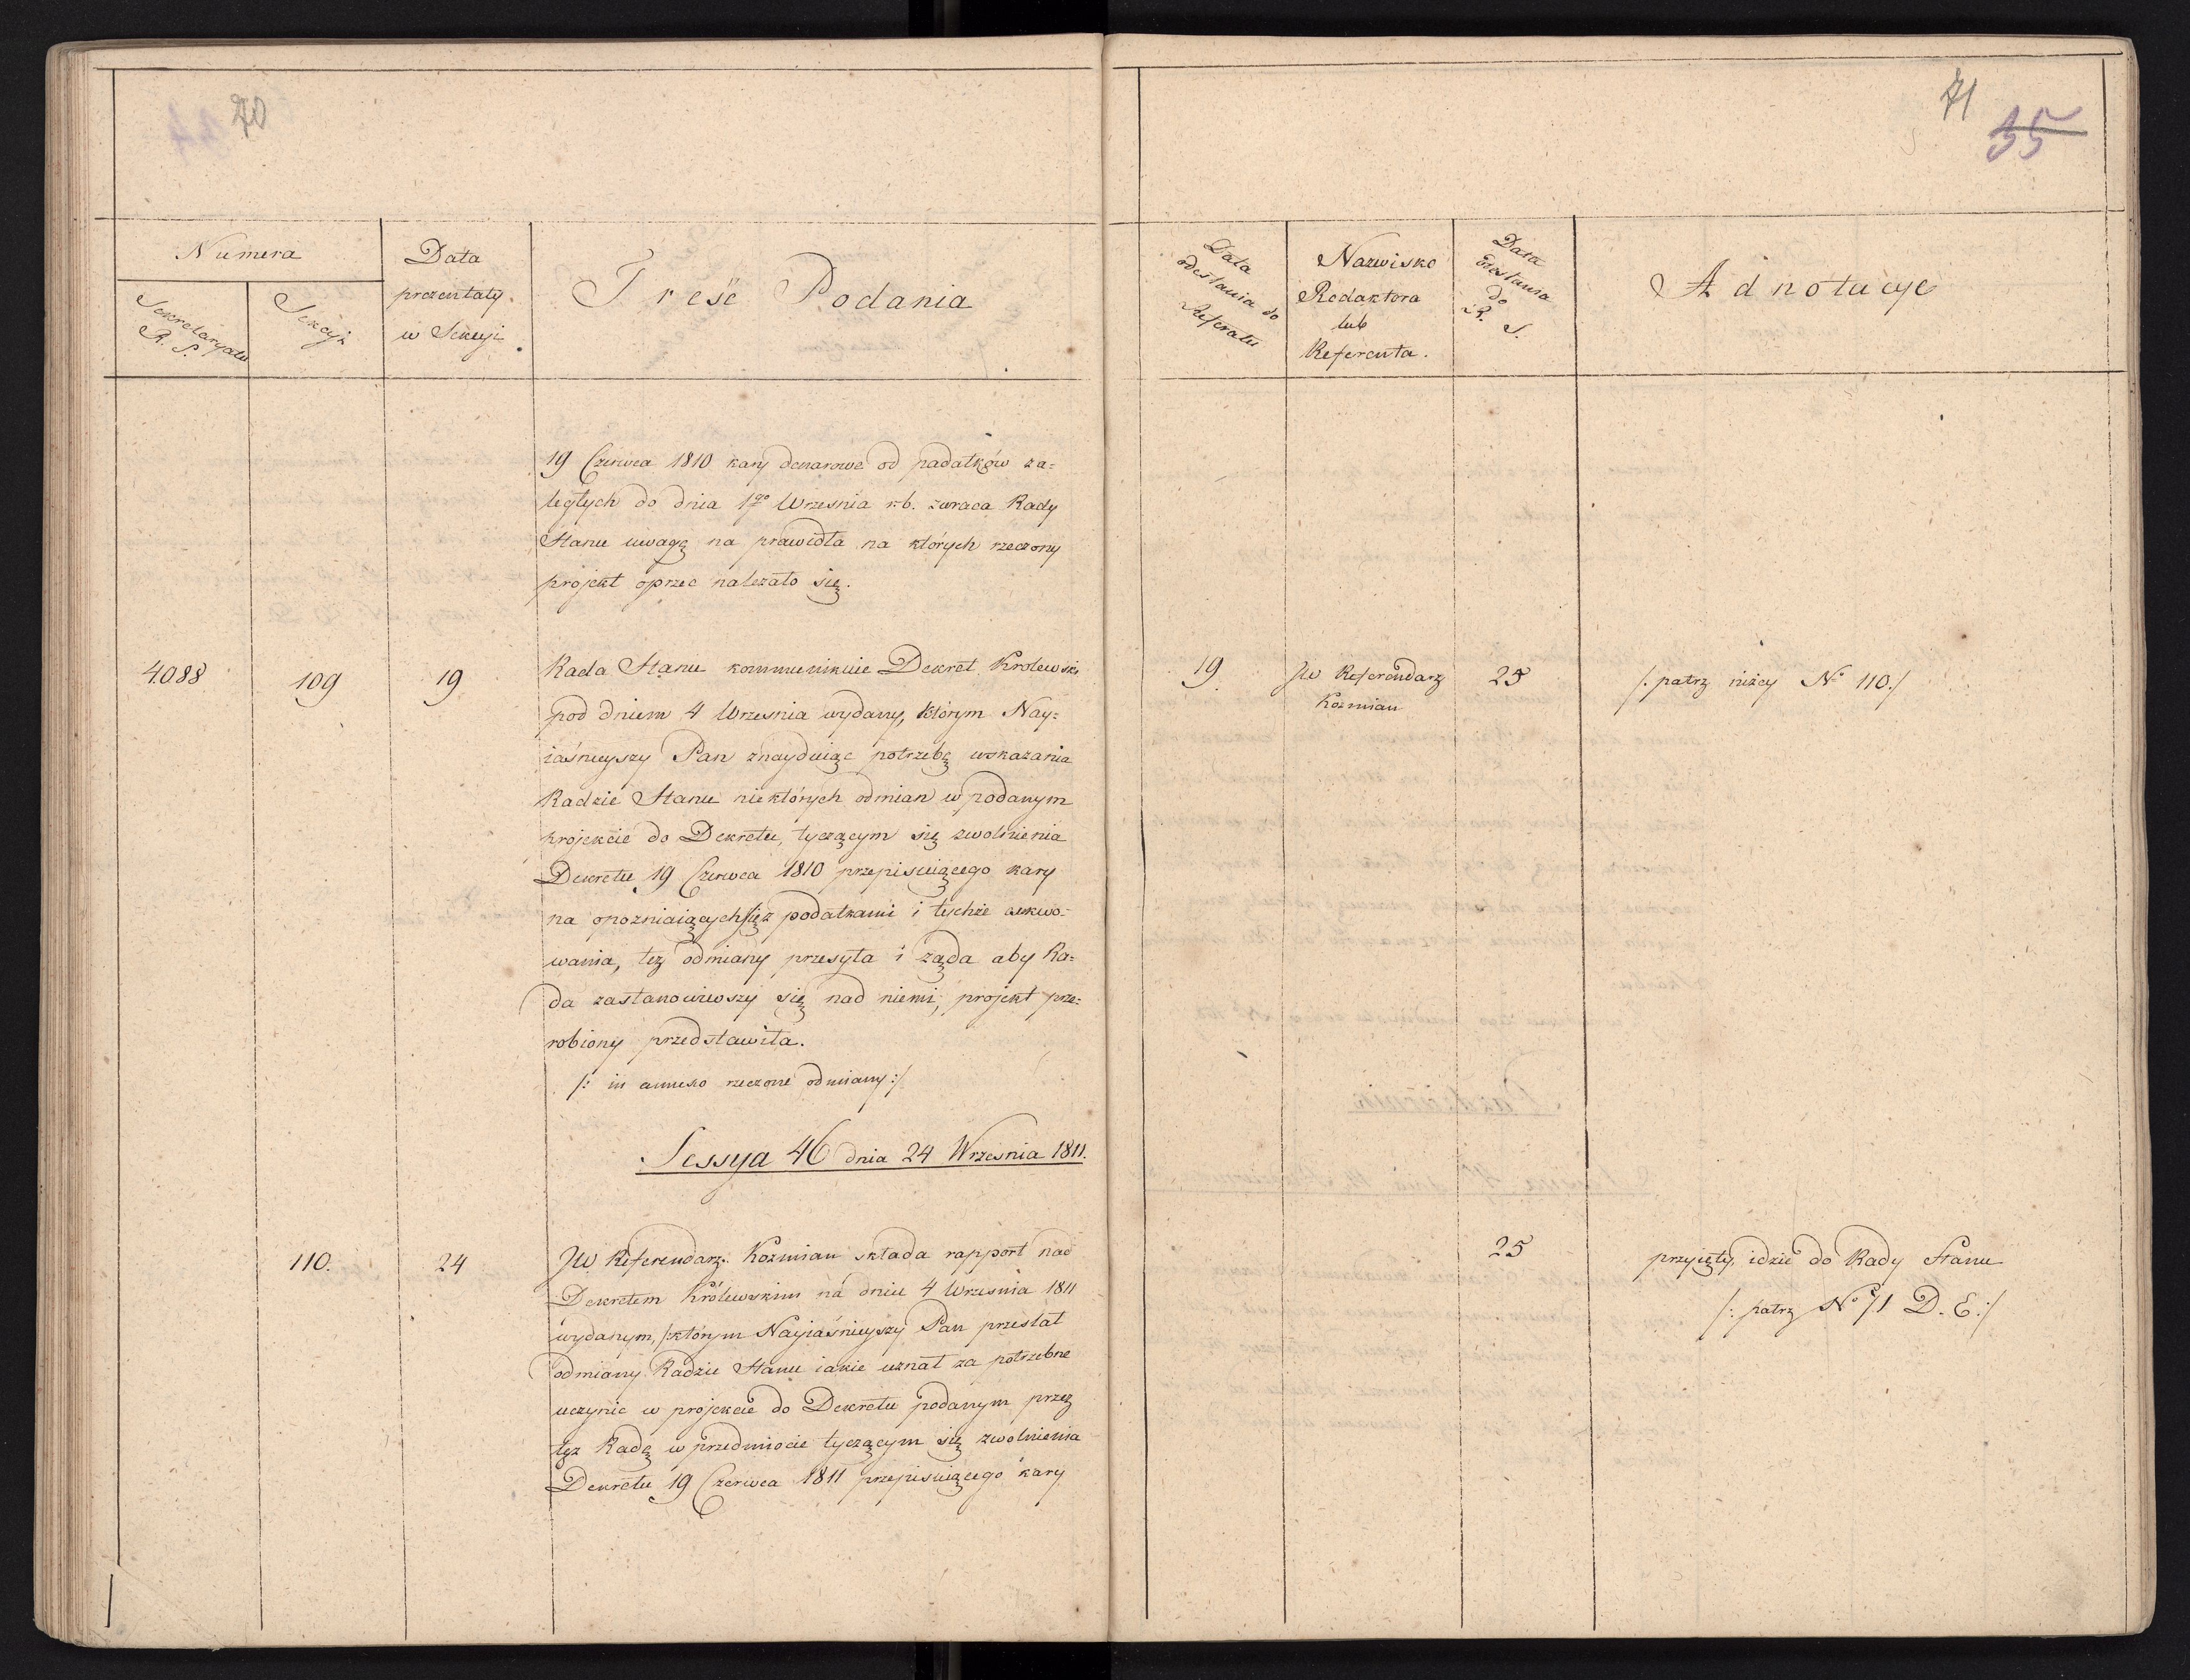 70
Numera
Sekretaryatu
R. S.
Sekcyi
Data
prezentaty
w Sekcyi.
Treść Podania
19 Czerwca 1810 kary denarowe od padatków za=
ległych do dnia 1go Wrzesnia r.b. zwraca Rady
Stanu uwagę na prawidła na których rzeczony
projekt oprzec należało się.
4088
109
19
Rada Stanu kommunikuie Dekret Krolewski
pod dniem 4 Wrzesnia wydany, którym Nay=
iaśnieyszy Pan znayduiąc potrzebę wskazania
Radzie Stanu niektórych odmian w podanym
projekcie do Dekretu, tyczącym się zwolnienia
Dekretu 19 Czerwca 1810 przepisuiącego kary
na opozniaiących się z podatkami i tychże exekwo=
wania, też odmiany przesyła i żąda aby Ra=
da zastanowiwszy się nad niemi, projekt prze=
robiony przedstawiła.
/: in annexo rzeczone odmiany :/
Sessya 46 dnia 24 Wrzesnia 1811.
110.
24
JW Referendarz Kozmian składa rapport nad
Dekretem Królewskim na dniu 4 Wrzesnia 1811
wydanym, którym Nayiaśnieyszy Pan przesłał
odmiany Radzie Stanu iakie uznał za potrzebne
uczynic w projekcie do Dekretu podanym przez
tęz Radę w przedmiocie tyczącym się zwolnienia
Dekretu 19 Czerwca 1811 przepisuiącego kary
71
35
Data
odesłania do
Referatu
Nazwisko
Redaktora
lub
Referenta.
Data
odesłania
do
R. S.
Adnotacye
19.
JW Referendarz
Kozmian
25
/: patrz niżey No 110 :/
25
przyięty, idzie do Rady Stanu
/: patrz No 71 D. E. :/